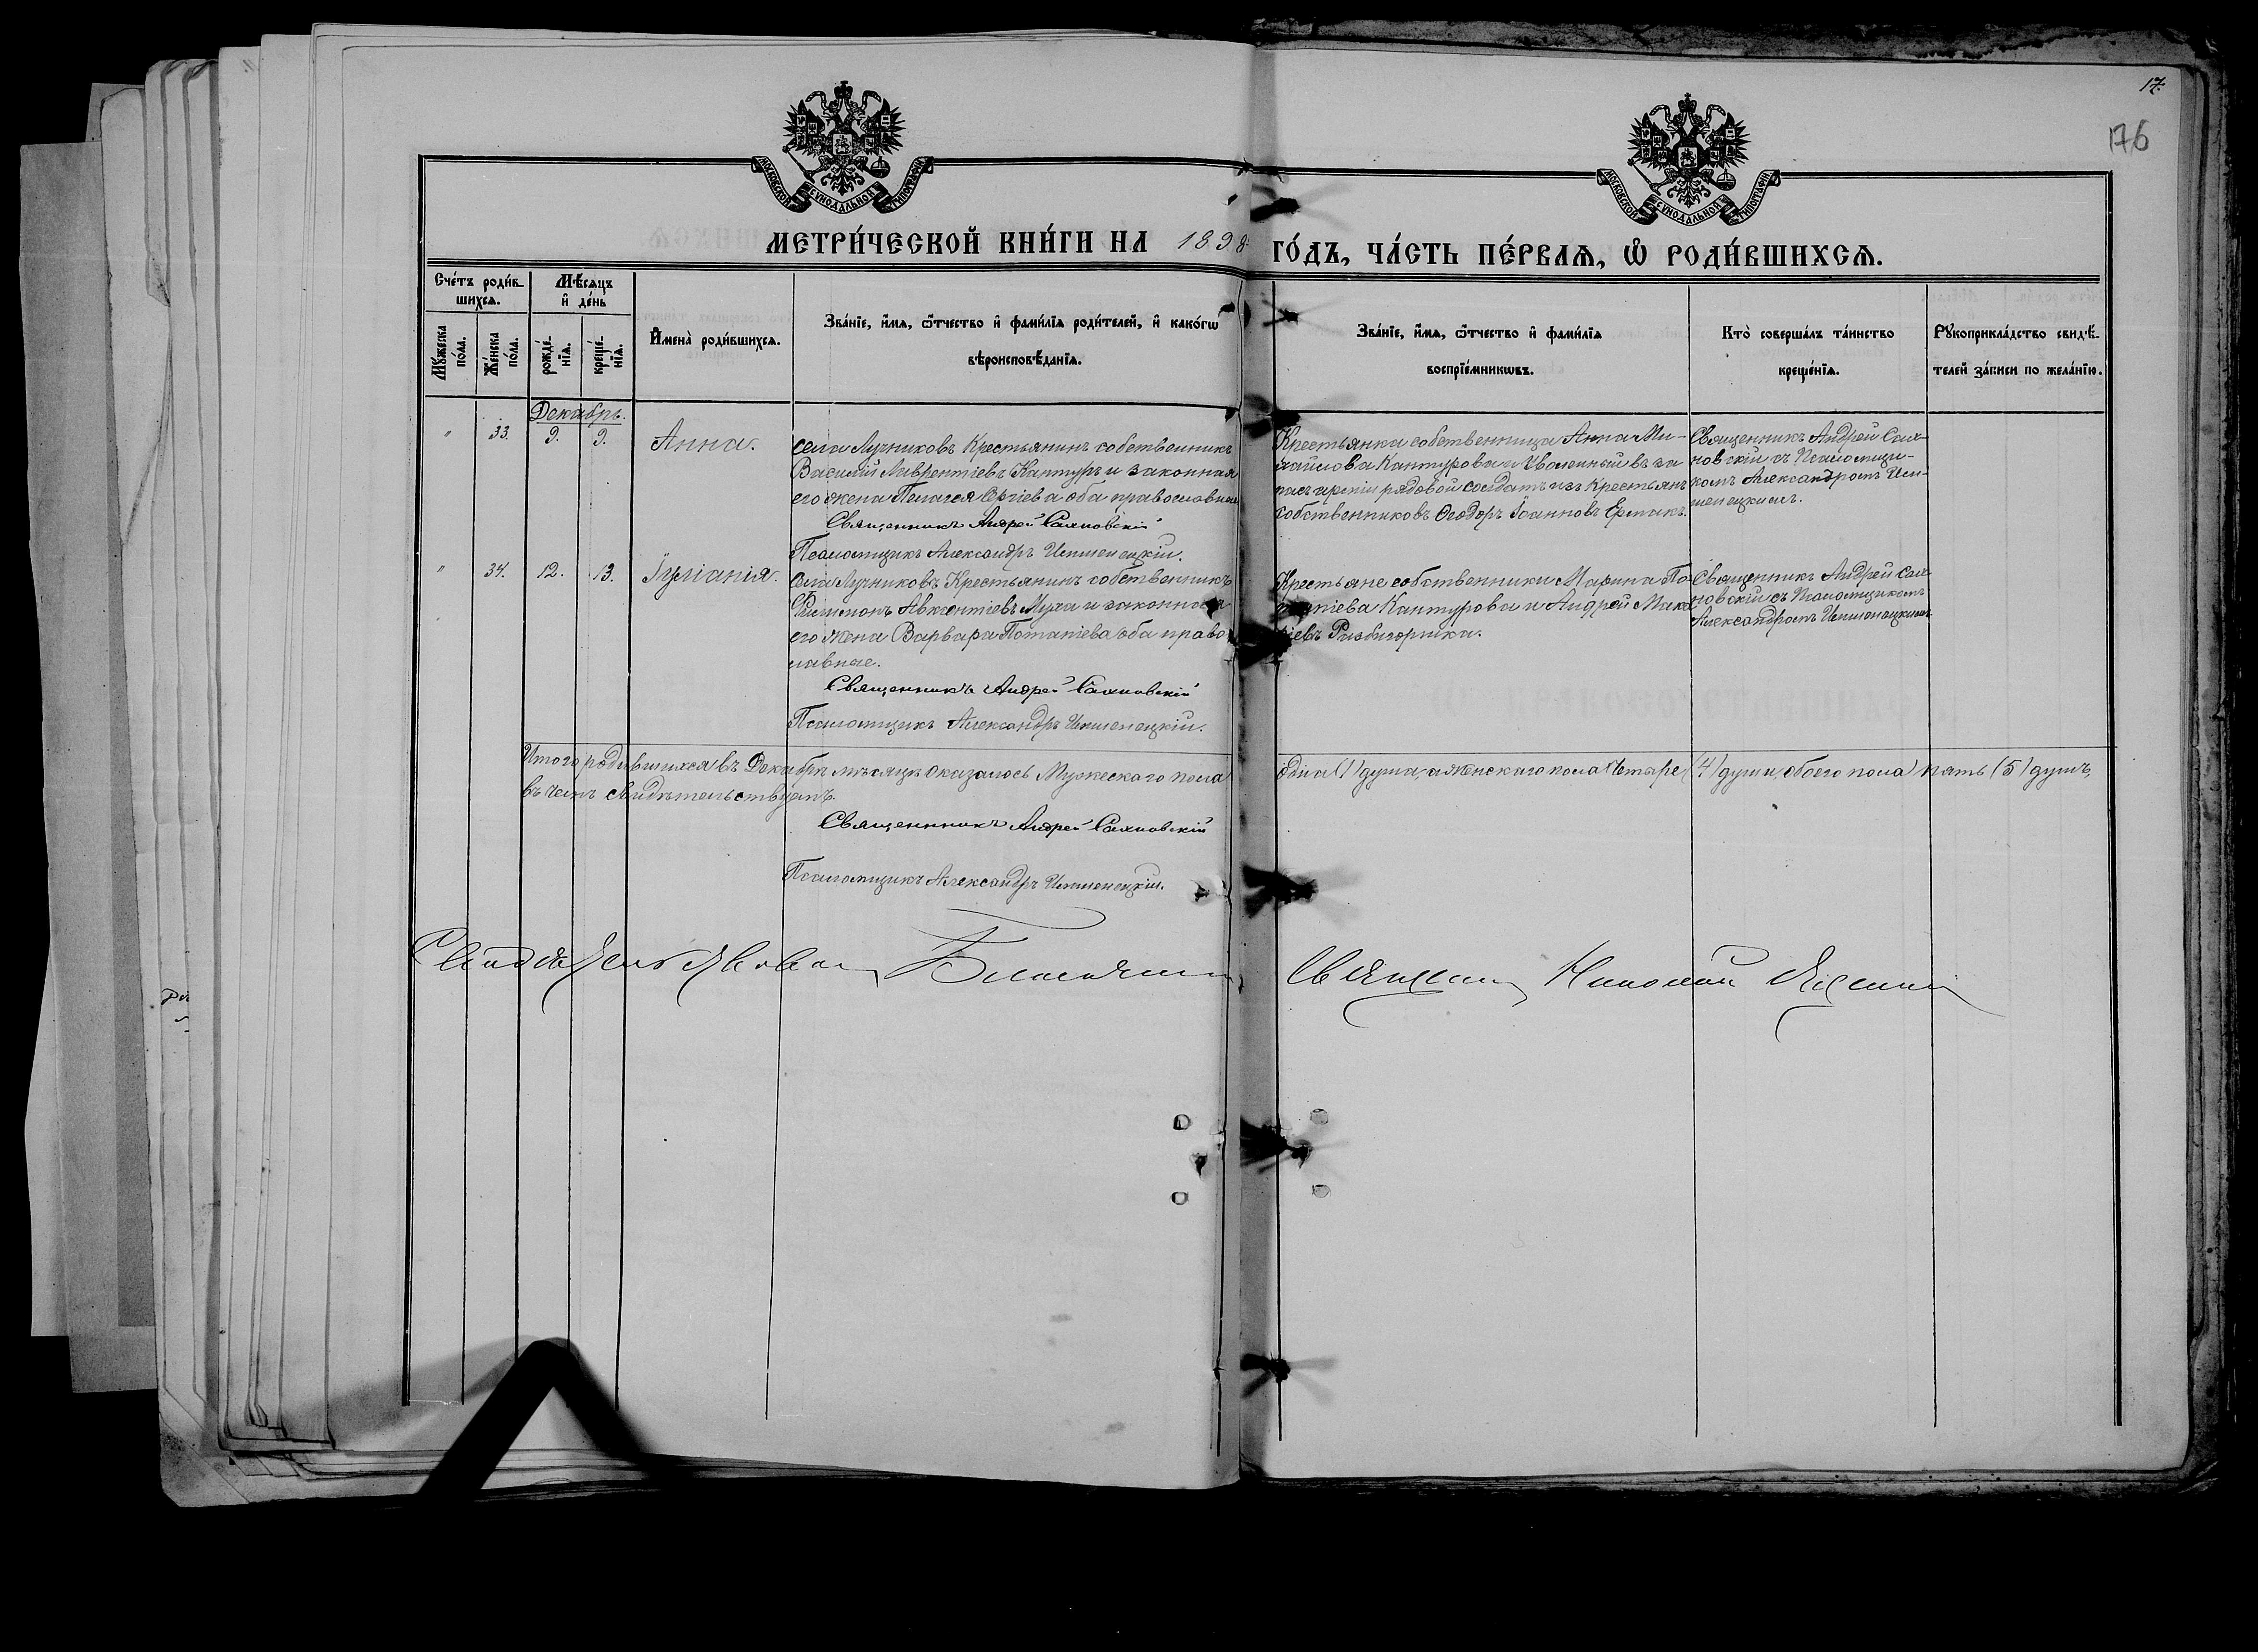 17.
176
МОСКОВСКОЙ СѴНОДАЛЬНОЙ ТИПОГРАФІИ
МОСКОВСКОЙ СѴНОДАЛЬНОЙ ТИПОГРАФІИ
МЕТРИ́ЧЕСКОЙ КНИ́ГИ НА 1898 ГО́ДЪ, ЧА́СТЬ ПЕ́РВАѦ, Ѡ҆ РОДИ́ВШИХСѦ.
Сче́тъ роди́в-
шихсѧ.
Мꙋ́жеска
по́ла.
Же́нска
по́ла.
Мѣ́сѧцъ
и҆ де́нь
рожде́-
нїѧ.
креще́-
нїѧ.
И҆мена̀ роди́вшихсѧ.
Зва́нїе, и҆́мѧ, ѻ҆́тчество и҆ фами́лїѧ роди́телей, и҆ како́гѡ
вѣроисповѣ́данїѧ.
Зва́нїе, и҆́мѧ, ѻ҆́тчество и҆ фами́лїѧ
воспрїе́мникѡвъ.
Кто̀ соверша́лъ та́инство
креще́нїѧ.
Рꙋкоприкла́дство свидѣ́-
телей за́писи по жела́нїю.
Декабрь.
" 33. 9. 9. Анна.
села Лучниковъ Крестьянинъ собственникъ
Василій Лаврентіевъ Кантуръ и законная
его жена Пелагея Сергіева оба православные
Священникъ Андрей Сахновскій
Псаломщикъ Александръ
Крестьянка собственница Анна Ми-
хайлова Кантурова и Уволенный въ за
пасъ арміи рядовой солдатъ изъ Крестьянъ
собственниковъ Ѳеодоръ Іоанновъ Ермакъ.
Священникъ Андрей Сах-
новскій съ Псаломщи-
комъ Александромъ
" 34. 12. 13. Іуліанія.
села Лучниковъ Крестьянинъ собственникъ
Филимонъ Авксентіевъ Муха и законная
его жена Варвара Потапіева оба право
славные.
Священникъ Андрей Сахновскій
Псаломщикъ Александръ
Крестьяне собственники Марина По-
тапіева Кантурова и Андрей Мака
ріевъ
Священникъ Андрей Сах-
новскій съ Псаломщикомъ
Александромъ
Итого родившихся въ Декабрѣ мѣсяцѣ Оказалось Мужескаго пола одна (1) душа, а Женскаго пола Четыре (4) души, обоего пола пять (5) душъ,
въ чемъ свидѣтельствуемъ.
Священникъ Андрей Сахновскій
Псаломщикъ Александръ
Священникъ Николай